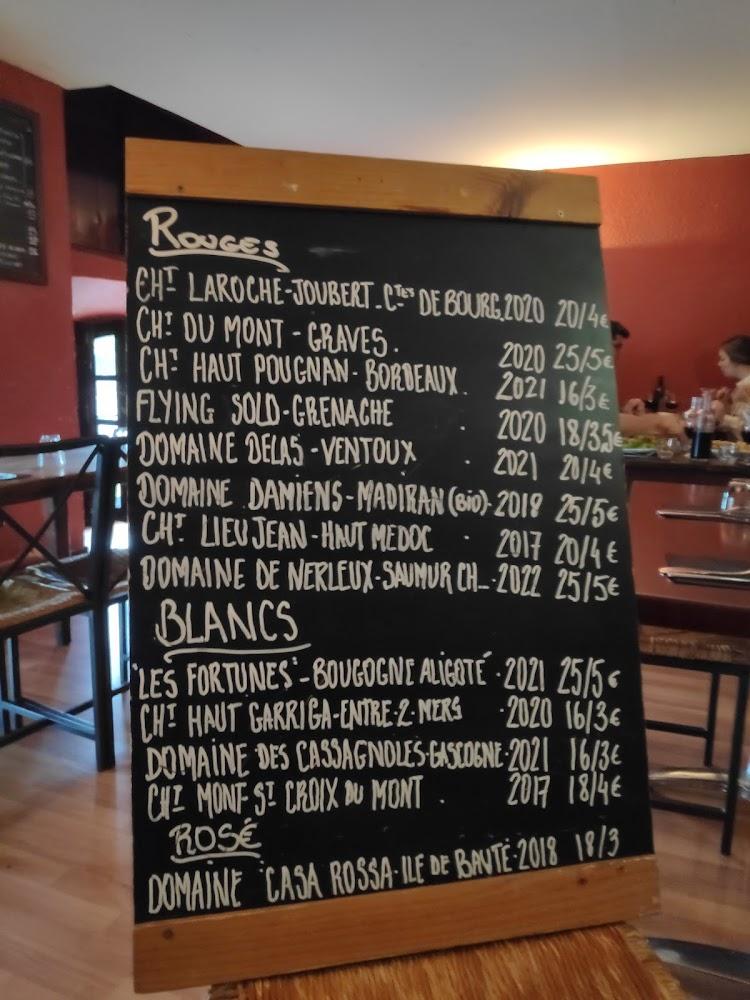 ROUGES
CHT LAROCHE-JOUBERT-CTES DE BOURG.2020 20/4€
CHT DU MONT - GRAVES. 2020 25/5€
CHT HAUT POUGNAN- BORDEAUX. 2021 16/3€
FLYING SOLO-GRENACHE . 2020 18/3,5€
DOMAINE DELAS -VENTOUX . 2021 20/4€
DOMAINE DAMIENS-MADIRAN (BIO)-2018 25/5€
CHT LIEUJEAN-HAUT MEDOC . 2017 20/4€
DOMAINE DE NERLEUX-SAUMUR CH_-2022 25/5€
BLANCS
"LES FORTUNES"-BOUGOGNE ALIGOTÉ .2021 25/5€
CHT HAUT GARRIGA-ENTRE.2.MERS .2020 16/3€
DOMAINE DES CASSAGNOLES-GASCOGNE.2021 16/3€
CHT MONT-ST CROIX DU MONT . 2017 18/4€
ROSÉ
DOMAINE CASA ROSSA-ILE DE BAUTÉ-2018 18/3